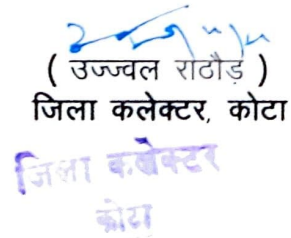 ( उज्ज्वल राठौड़ )
जिला कलेक्टर, कोटा
जिला कलेक्टर
कोटा